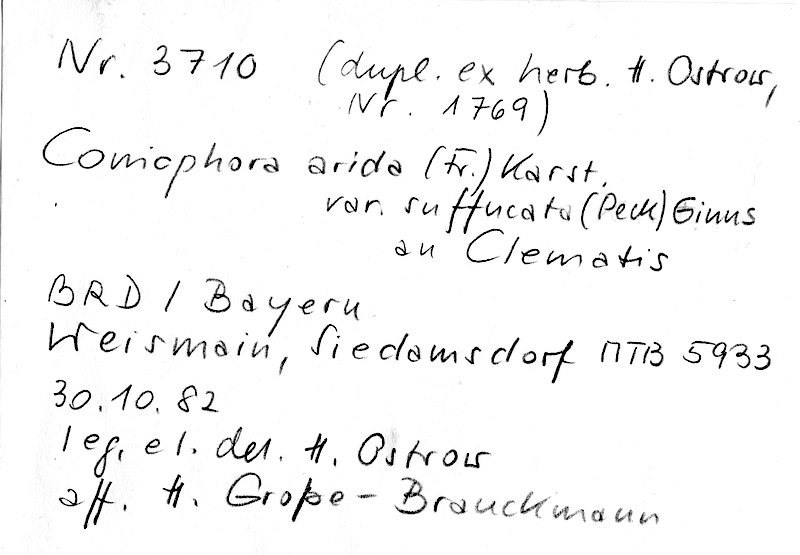 Nr. 3710 (dupl. ex herb. H. Ostrow,
Nr. 1769)
Coniophora arida (Fr.) Karst.
var. suffucata (Peck) Ginns
an Clematis
BRD / Bayern
Weismain, Siedamsdorf MTB 5933
30.10.82
leg. et. det. H. Ostrow
aff. H. Große-Brauckmann